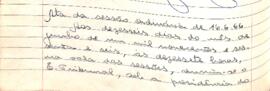 Ata da sessão ordinária de 16.6.66.
Aos dezesseis dias do mês de
junho de um mil novecentos e ses-
senta e seis, às dezessete horas,
na sala das sessões, reuniu-se o
E. Tribunal, sob a presidência do